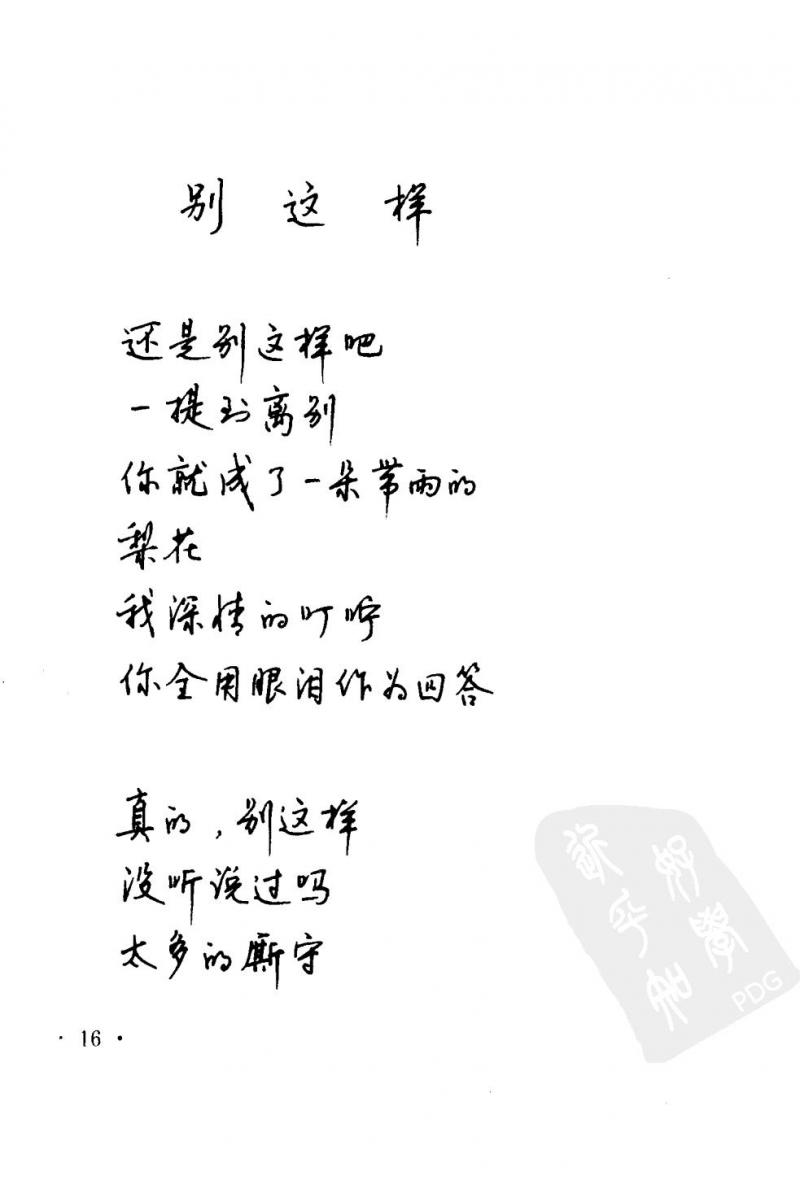 别 这 样
还是别这样吧
一提到离别
你就成了一朵带雨的
梨花
我深情的叮咛
你全用眼泪作为回答
真的，别这样
没听说过吗
太多的厮守
· 16 ·
PDG